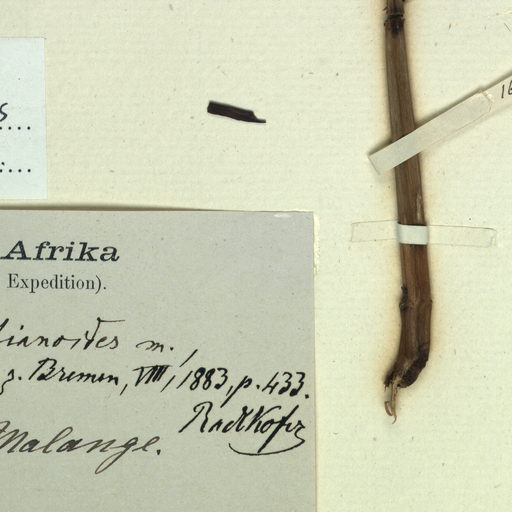 s
....
:...
16
Afrika
Expedition).
ianoides m.,
z. Bremen, VIII, 1883, p. 433.
Radlkofer
Malange.